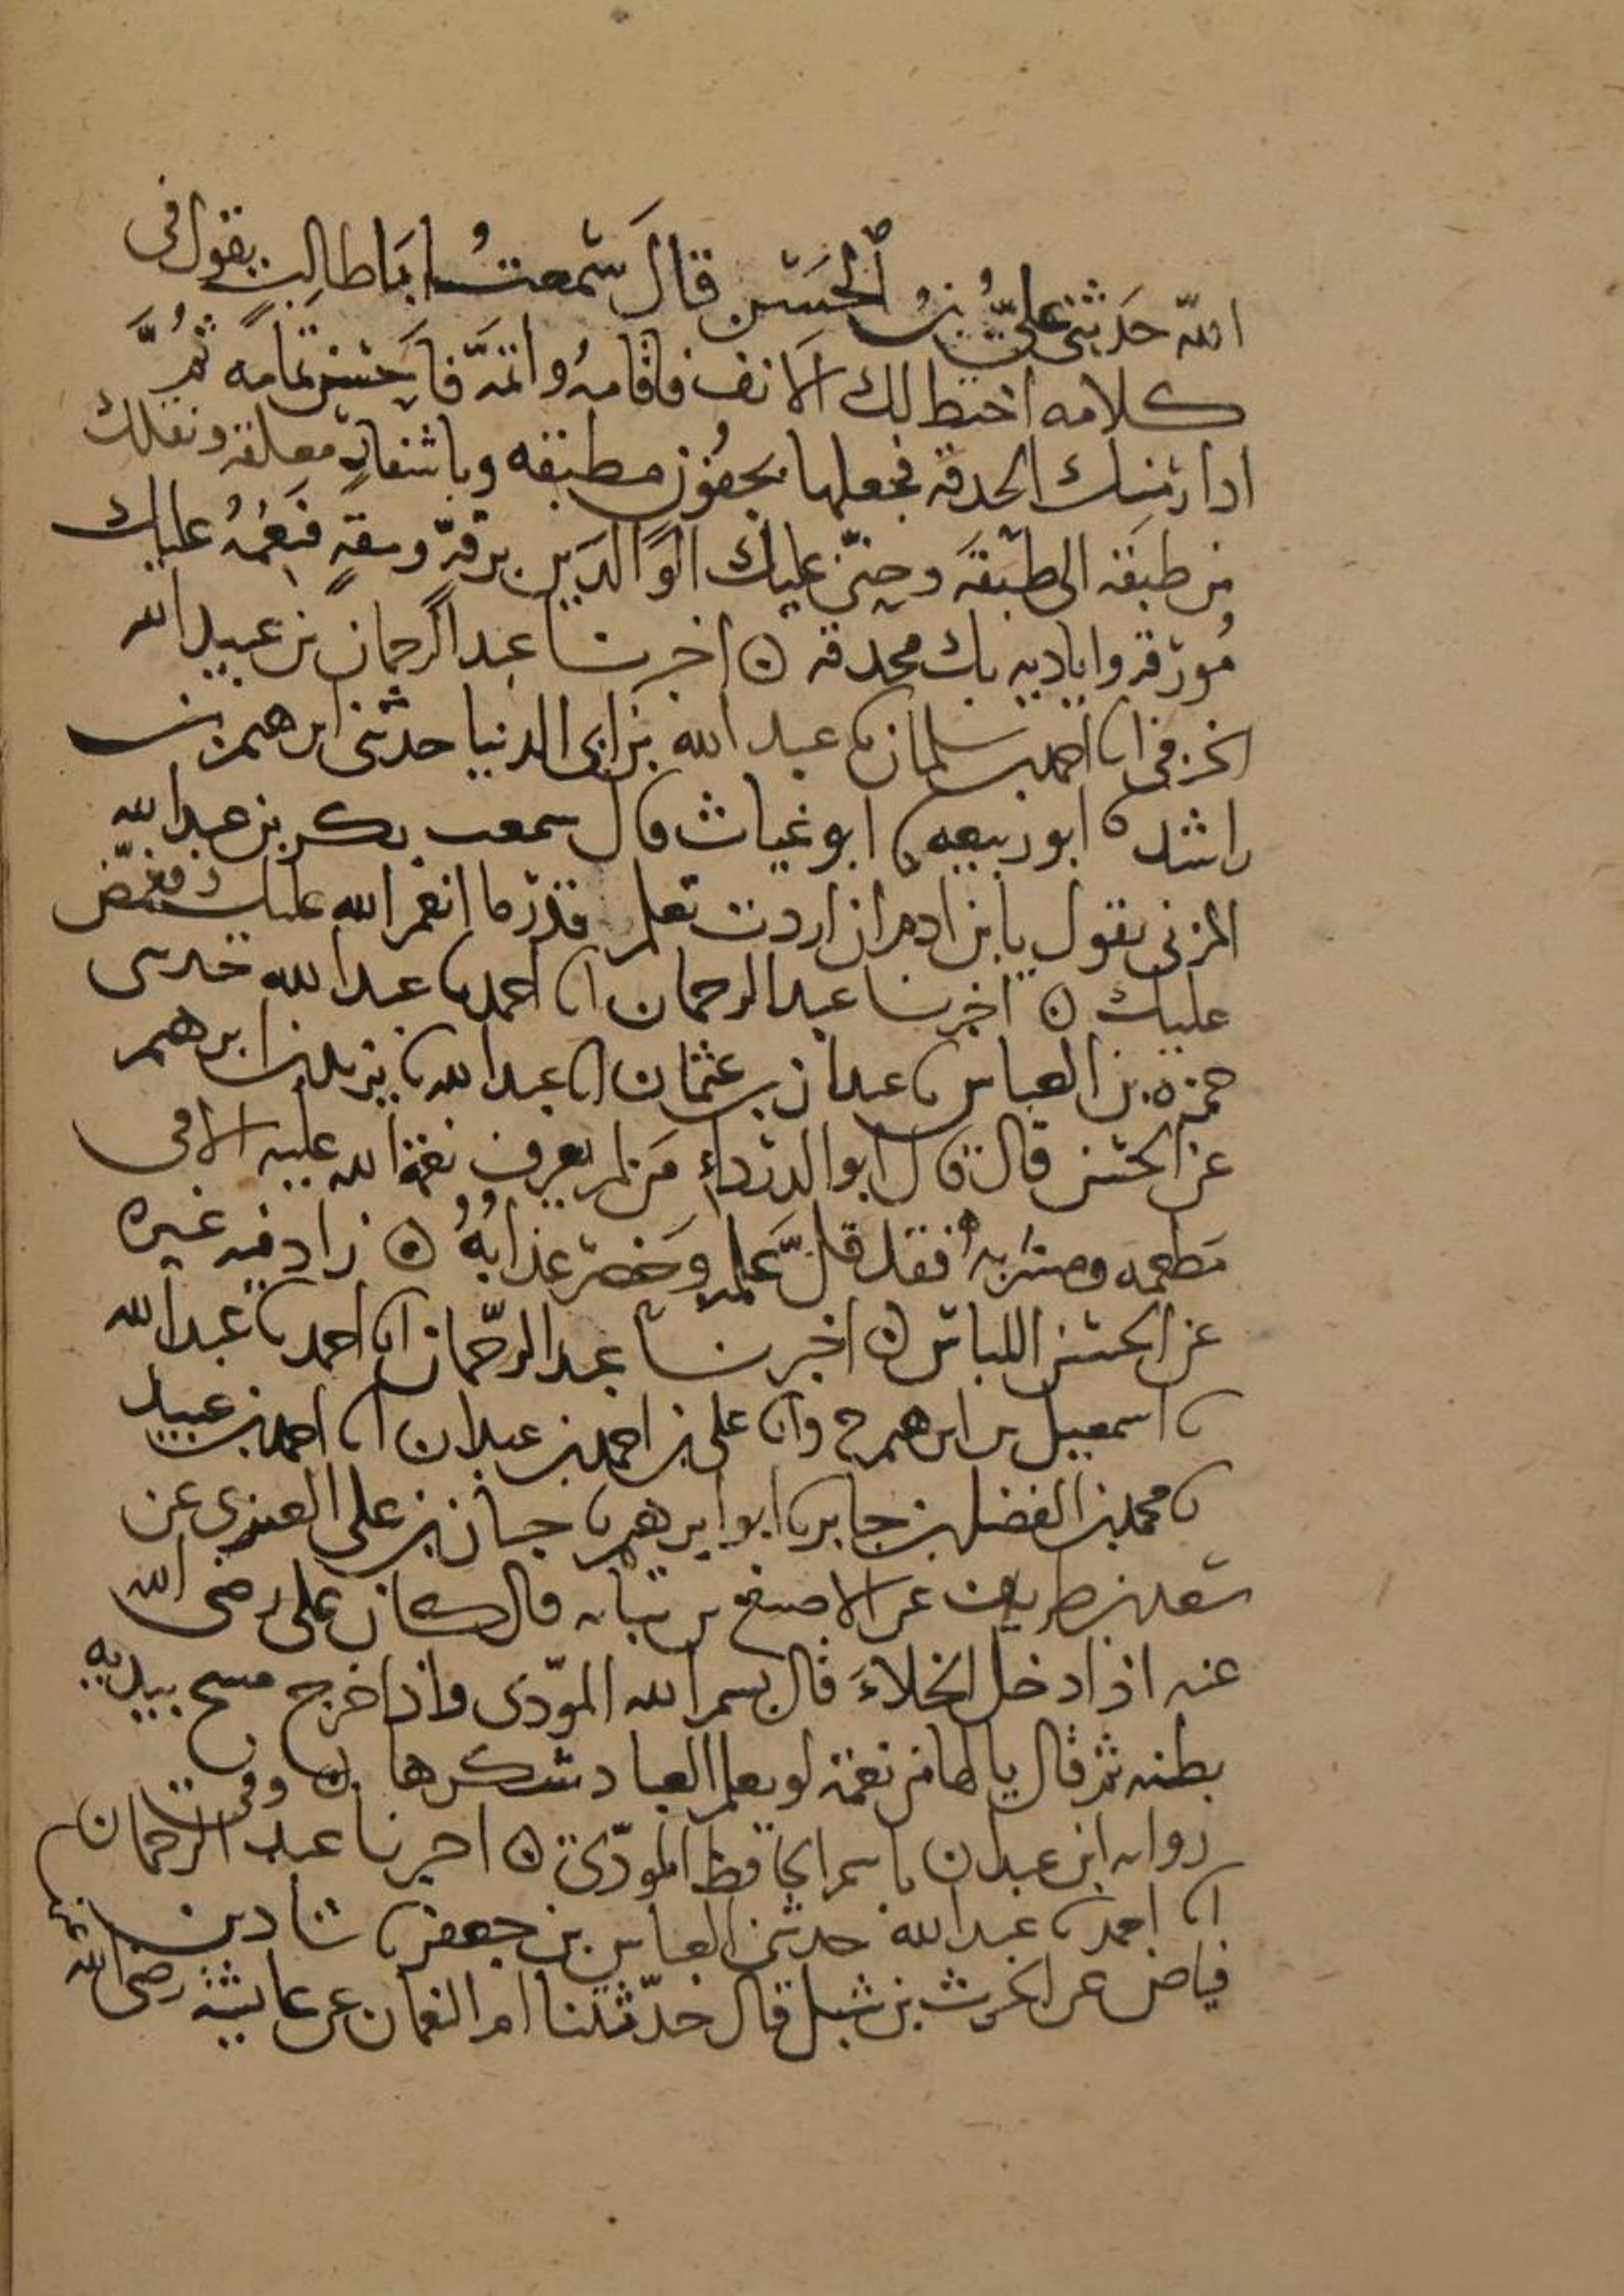 الله حدثني عليُّ بنُ الحَسَن قالَ سَمعتُ ابَا طالِب يقول في
كلامه اختط لك الانف فاقامهُ واتمّه فاحسن تمامه ثُمَّ
ادار منك الحدقة فجعلها بجفُون مطبقه وباشفارٍ معلقة ونقلك
من طبقة الى طبقة وحنّن عليك الوالدَين برقّةٍ ومقةٍ فنعمُهُ عليك
مُورقة واياديه بك محدقه ۞ اخبرنا عبد الرحمان بن عبيد الله
الخرفي انا احمد بن سلمان نا عبد الله بن ابي الدنيا حدثني ابرهيم بن
راشد نا ابو ربيعه نا ابو غياث قال سمعت بكر بن عبد الله
المزني يقول يا بن ادم ان اردت تعلم قدر ما انعم الله عليك فغمّض
عليك ۞ اخبرنا عبد الرحمان انا احمد نا عبد الله حدثني
حمزه بن العباس نا عبدان بن عثمان انا عبد الله نا يزيد بن ابرهيم
عن الحسن قال قال ابو الدرداء مَن لم يعرف نعمة الله عليه الا في
مَطعمه ومشربه فقد قلَّ عَلمه وحَضر عذابُهُ ۞ زاد فيه غيره
عن الحسن اللباس ۞ اخبرنا عبد الرحمان انا احمد نا عبد الله
نا اسمعيل بن ابرهيم ح وانا علي بن احمد بن عبدان انا احمد بن عبيد
نا محمد بن الفضل بن جابر نا ابو ابرهيم نا حبان بن علي العنزي عن
سعد بن طريف عن الاصبغ بن نباته قال كان علي رضي الله
عنه اذا دخل الخلاءَ قال بسم الله المودّى واذا خرج مسح بيديه
بطنه ثم قال يا لها من نعمة لو يعلم العباد شكرها ۞ وفي
روايه ابن عبدان باسم الحافظ المودّى ۞ اخبرنا عبد الرحمان
انا احمد نا عبد الله حدثني العباس بن جعفر نا شاد بن
فياض عن الحرث بن شبل قال حدّثتنا ام النعمان عن عايشة رضي الله عنها